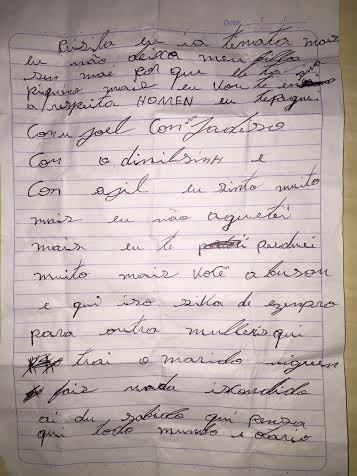 Data: / /
Prisila eu ia te mata mais
eu não deixa meu filho
sen mãe por que ele ta
piqueno mais eu vou te en zina
a respeita HOMEN eu te pagei
Con u joel Con
Con o dinilsinh e
Con agil eu sinto muito
mais eu não aguetei
mais eu te parduei
muito mais você abuson
e qui iso sirva de ezenpro
para outra mulleris qui
trai o marido niguen
fais nada iscondido
ai du sabido qui penza
qui todo mundo e otario